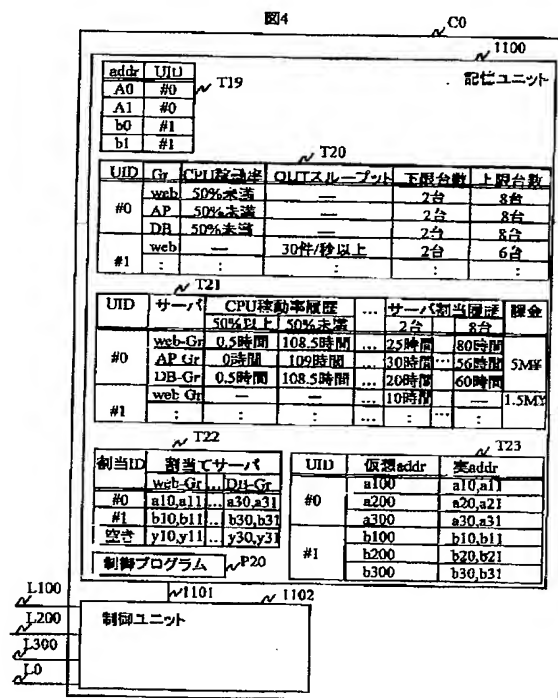 図4
C0
1100
記憶ユニット
T19
addr UID
A0 #0
A1 #0
b0 #1
b1 #1
T20
UID Gr CPU稼動率 OUTスループット 下限台数 上限台数
#0 web 50%未満 — 2台 8台
AP 50%未満 — 2台 8台
DB 50%未満 — 2台 8台
#1 web — 30件/秒以上 2台 6台
: : : : :
T21
UID サーバ CPU稼動率履歴 … サーバ割当履歴 課金
50%以上 50%未満 2台 8台
#0 web-Gr 0.5時間 108.5時間 … 25時間 80時間 5M¥
AP Gr 0時間 109時間 … 30時間 … 56時間
DB-Gr 0.5時間 108.5時間 … 20時間 60時間
#1 web Gr — — … 10時間 — 1.5M¥
: : : … : … :
T22
割当ID 割当てサーバ
web-Gr … DB-Gr
#0 a10,a11 … a30,a31
#1 b10,b11 … b30,b31
空き y10,y11 … y30,y31
T23
UID 仮想addr 実addr
#0 a100 a10,a11
a200 a20,a21
a300 a30,a31
#1 b100 b10,b11
b200 b20,b21
b300 b30,b31
制御プログラム P20
1101
1102
制御ユニット
L100
L200
L300
L0